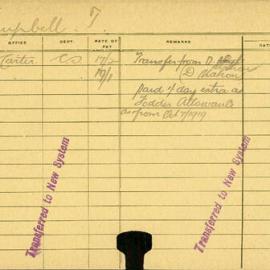 mpbell. T.
OFFICE DEPT. RATE OF PAY REMARKS DATE
Carter CD 17/- Transfer from D
19/1 (D Station
paid 1/ day extra as
Fodder Allowance
as from Oct 1919
Transferred to New System
Transferred to New System